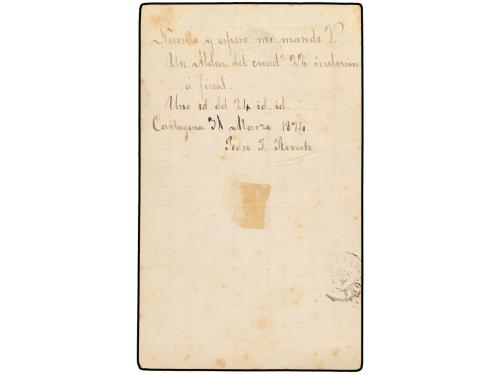 Necesito y espero me mande V.
Un Aldea del cuadº 22 inclusive
á final.
Uno id del 24 id. id.
Cartagena 31 Marzo 1874
Pedro J. Reverte